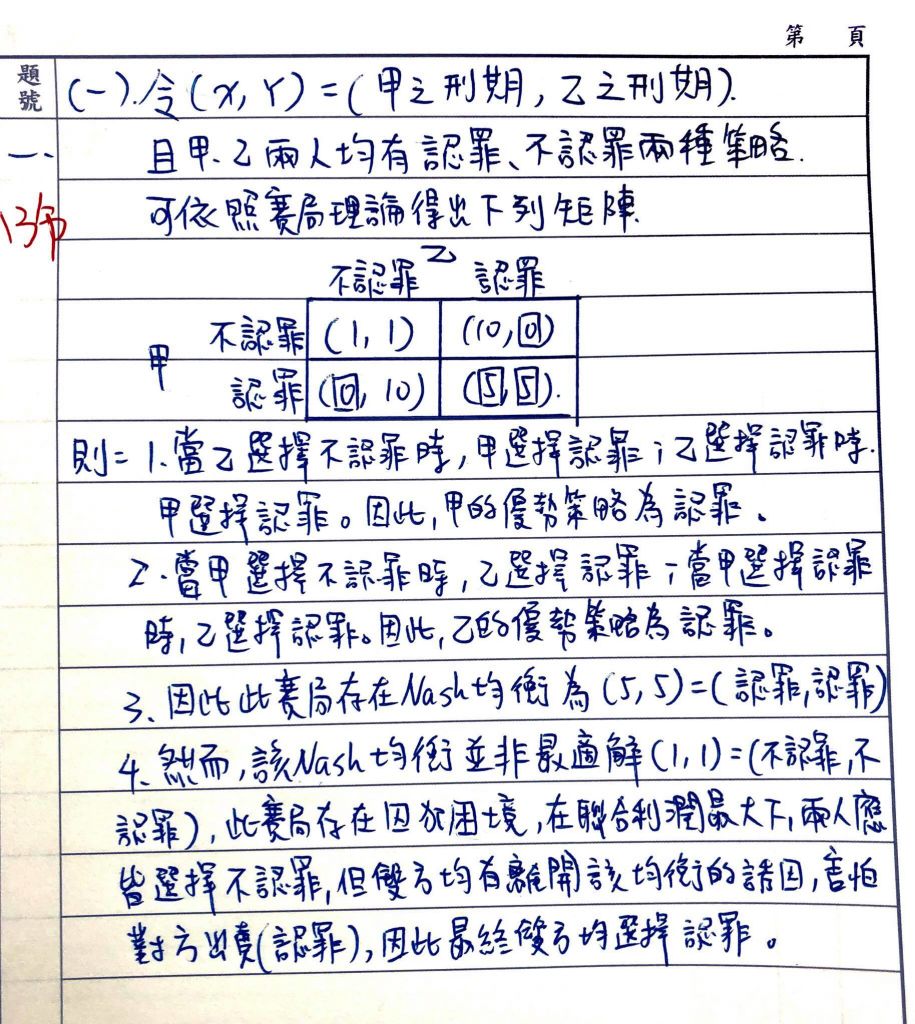 第 頁
題號
(一).令(X,Y)=(甲之刑期,乙之刑期).
一、
且甲、乙兩人均有認罪、不認罪兩種策略.
13分
可依照賽局理論得出下列矩陣.
乙
不認罪 認罪
甲
不認罪 (1,1) (10,0)
認罪 (0,10) (5,5).
則=1.當乙選擇不認罪時,甲選擇認罪;乙選擇認罪時.
甲選擇認罪。因此,甲的優勢策略為認罪。
2.當甲選擇不認罪時,乙選擇認罪;當甲選擇認罪
時,乙選擇認罪。因此,乙的優勢策略為認罪。
3、因此此賽局存在Nash均衡為(5,5)=(認罪,認罪)
4、然而,該Nash均衡並非最適解(1,1)=(不認罪,不
認罪),此賽局存在囚犯困境,在聯合利潤最大下,兩人應
皆選擇不認罪,但雙方均有離開該均衡的誘因,害怕
對方出賣(認罪),因此最終雙方均選擇認罪。